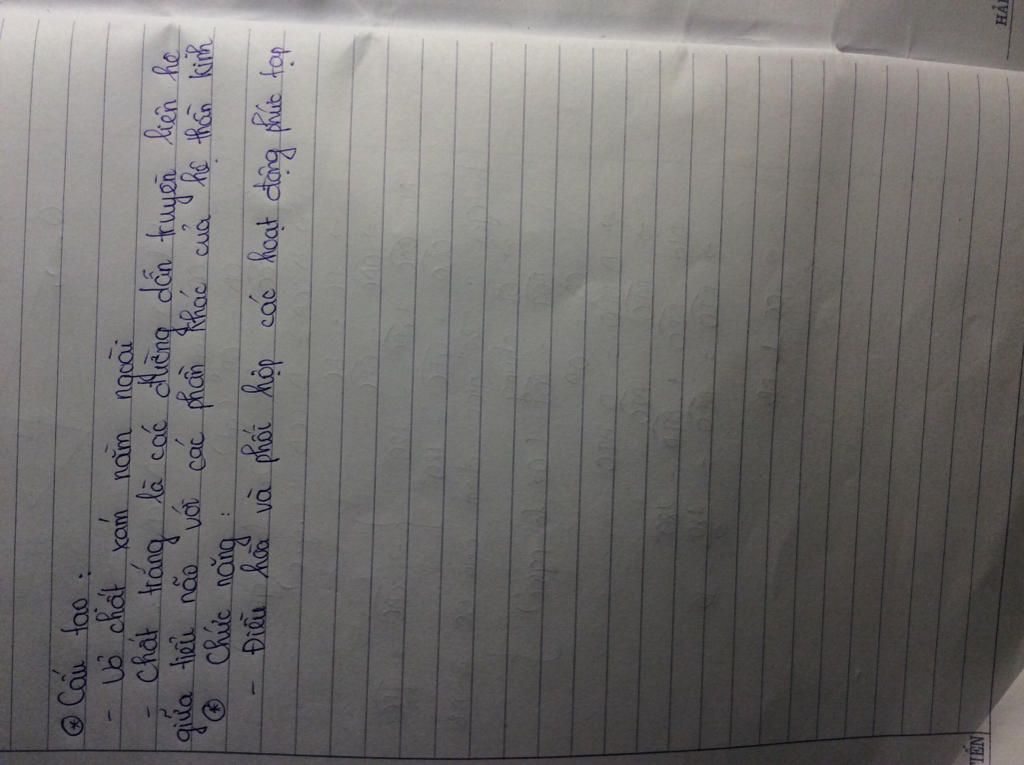 ⊛ Cấu tạo :
- Vỏ chất xám nằm ngoài
- Chất trắng là các đường dẫn truyền liên hệ
giữa tiểu não với các phần khác của hệ thần kinh
⊛ Chức năng :
- Điều hoà và phối hợp các hoạt động phức tạp
TIẾN
HẢI